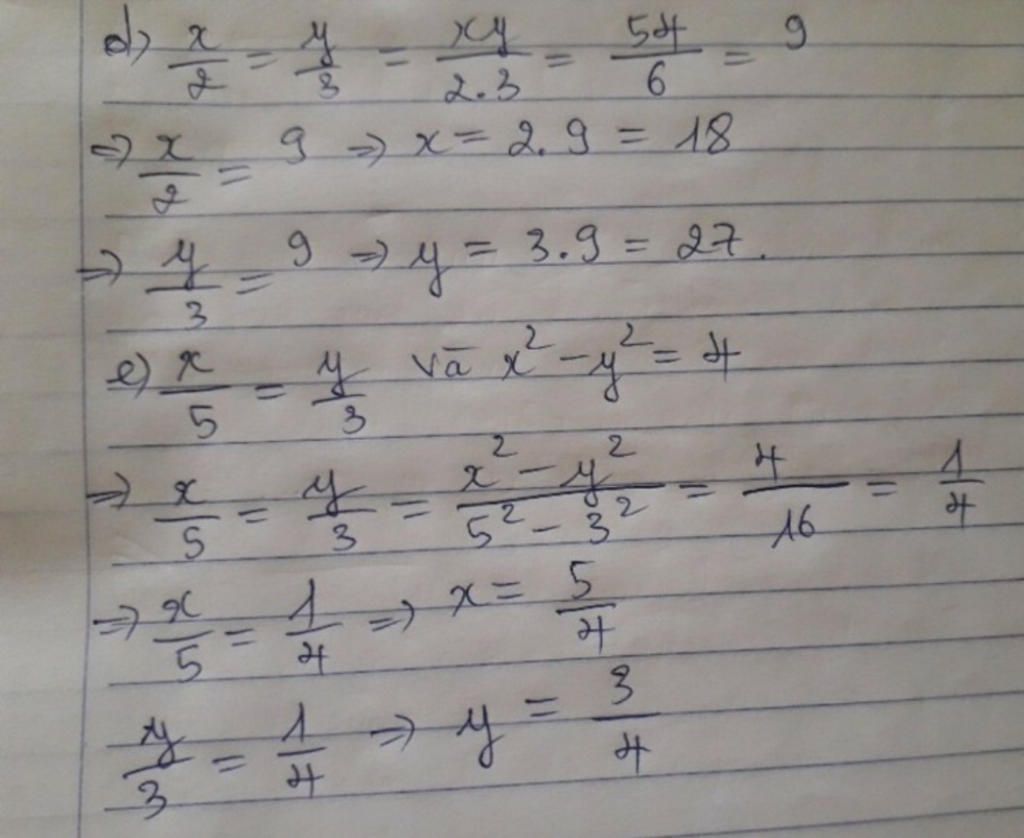 d) x/2 = y/3 = xy/2.3 = 54/6 = 9
=> x/2 = 9 => x = 2.9 = 18
=> y/3 = 9 => y = 3.9 = 27.
e) x/5 = y/3 và x² - y² = 4
=> x/5 = y/3 = x² - y²/5² - 3² = 4/16 = 1/4
=> x/5 = 1/4 => x = 5/4
y/3 = 1/4 => y = 3/4